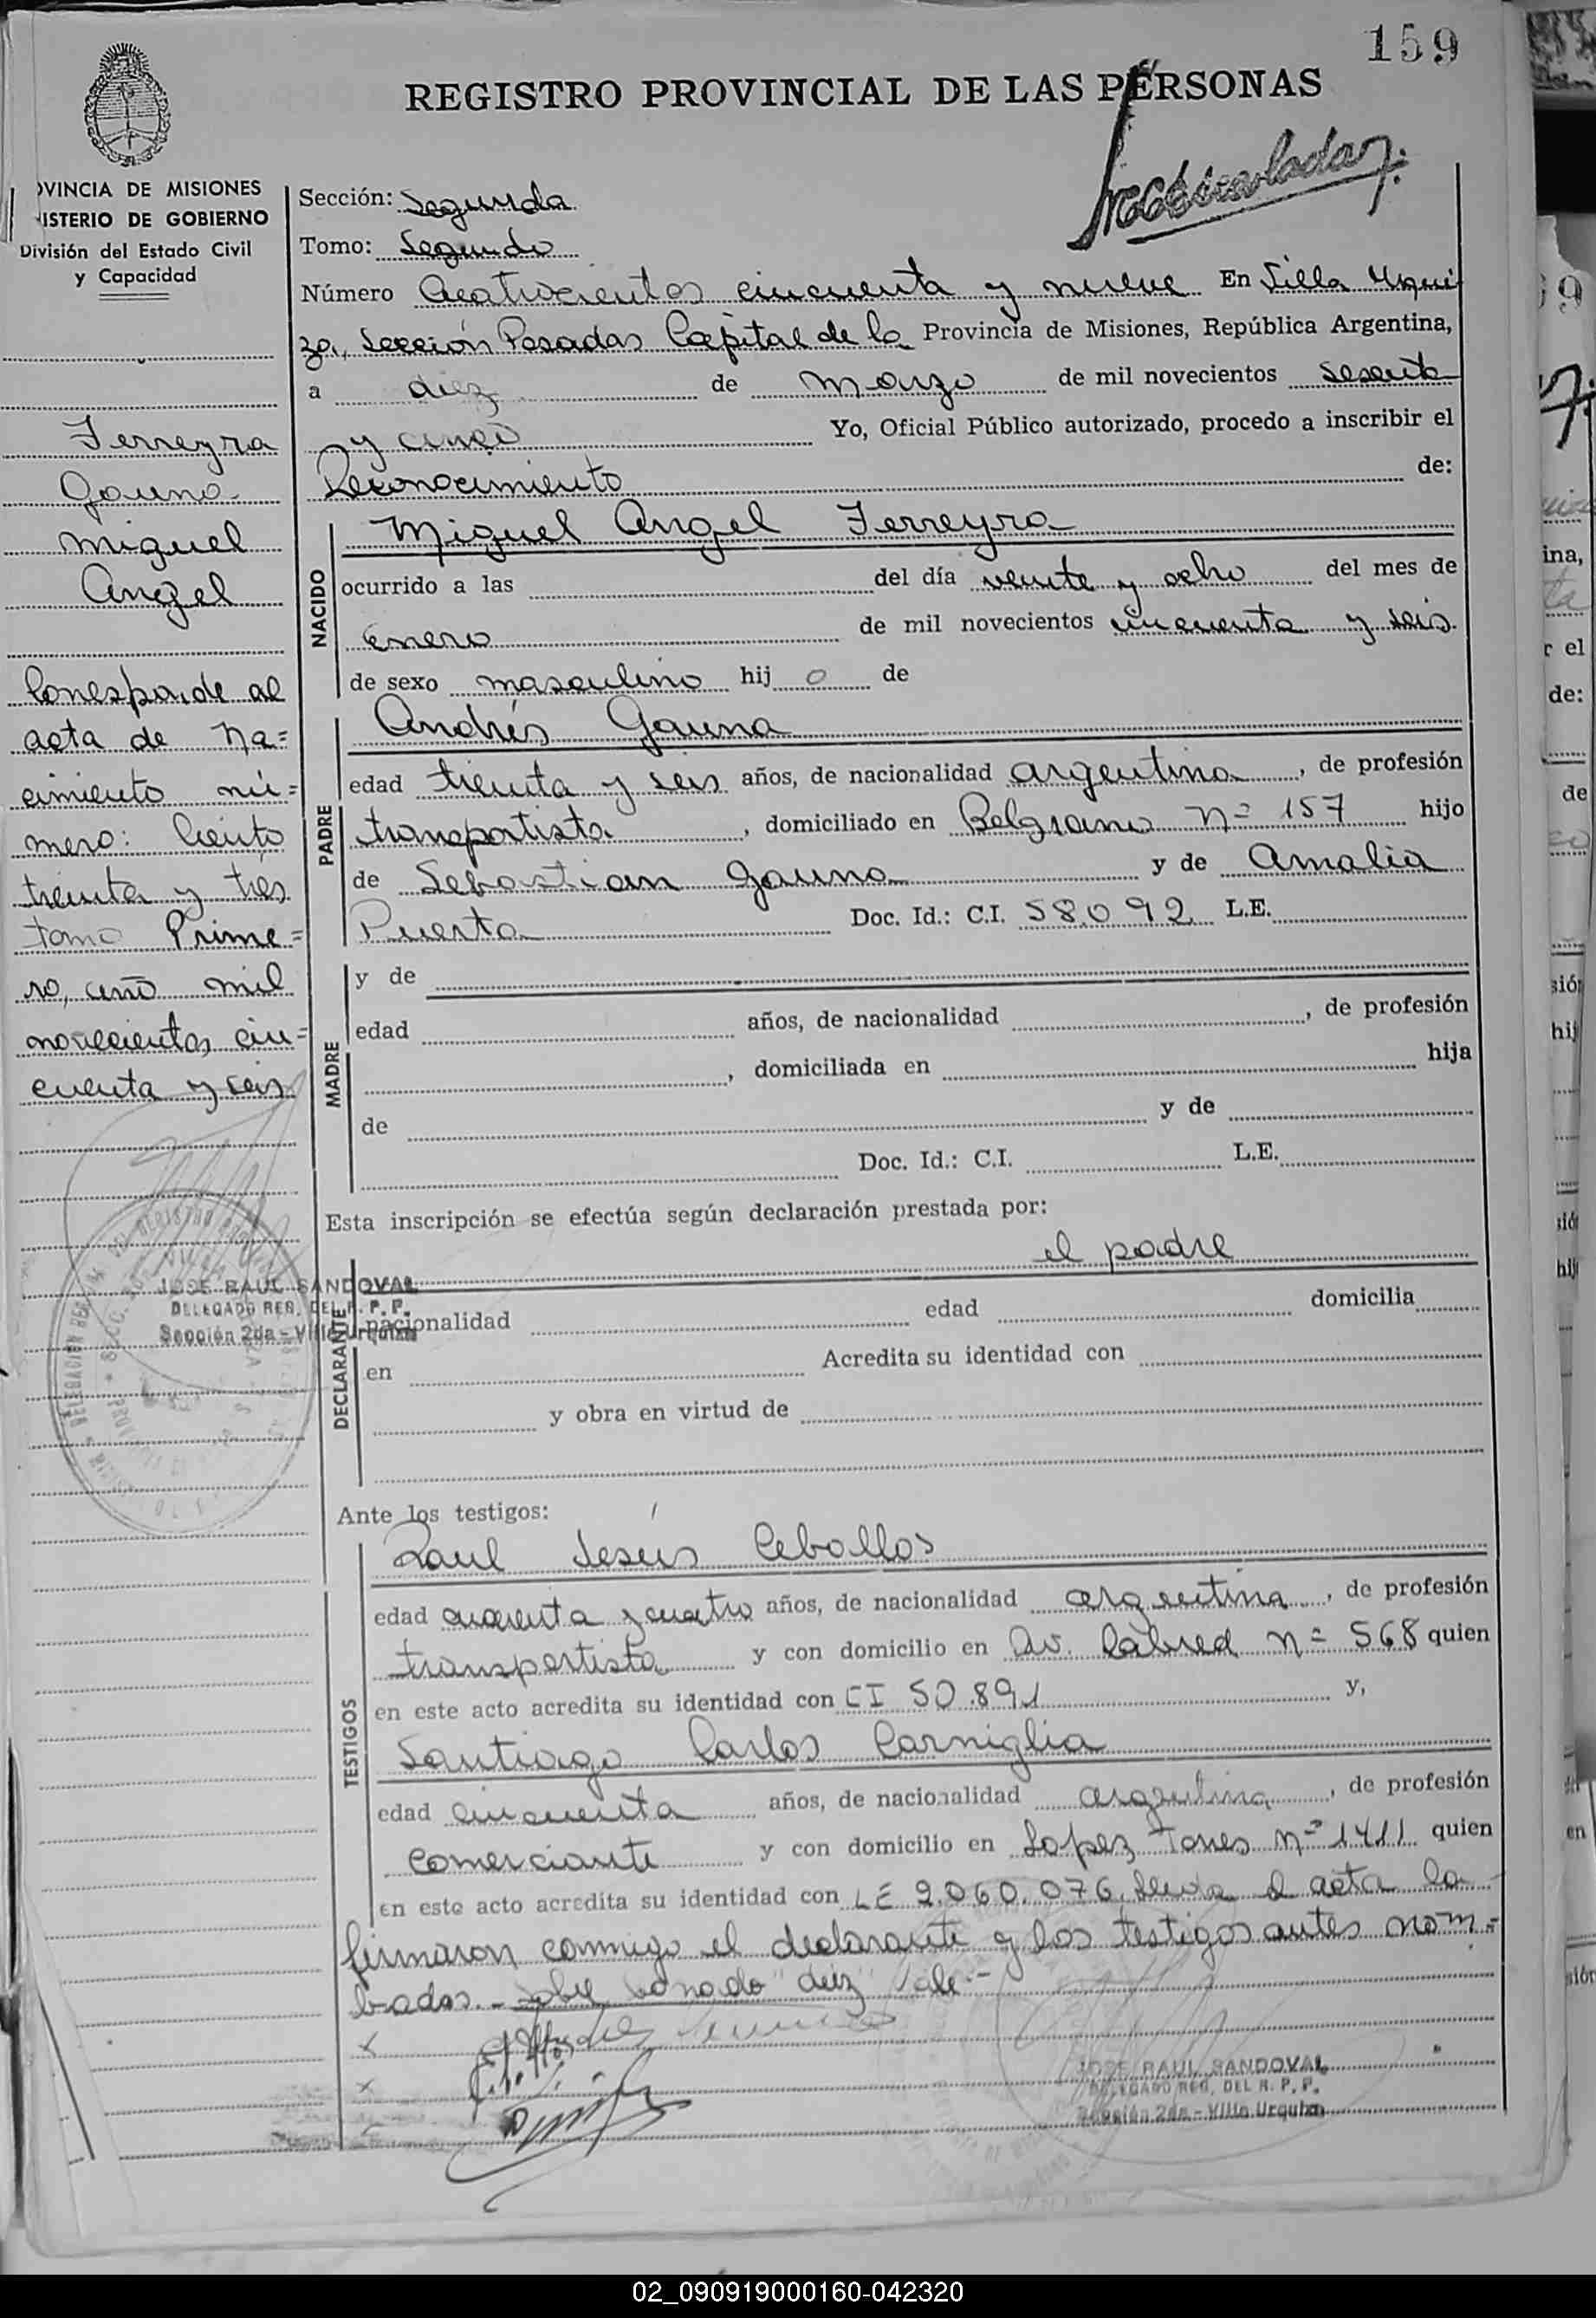 159
REGISTRO PROVINCIAL DE LAS PERSONAS
PROVINCIA DE MISIONES
MINISTERIO DE GOBIERNO
División del Estado Civil
y Capacidad
Sección: Segunda
Tomo: Segundo
Número Cuatrocientos cincuenta y nueve En Villa Urqui
za, Sección Posadas Capital de la Provincia de Misiones, República Argentina,
a diez de marzo de mil novecientos sesenta
y cinco Yo, Oficial Público autorizado, procedo a inscribir el
Reconocimiento de:
Ferreyra
Gauna
Miguel
Angel
Corresponde al
acta de na=
cimiento nú=
mero: Ciento
treinta y tres
tomo Prime=
ro, año mil
novecientos cin=
cuenta y seis
NACIDO
Miguel Angel Ferreyra
ocurrido a las del día veinte y ocho del mes de
Enero de mil novecientos cincuenta y seis
de sexo masculino hijo de
PADRE
Andrés Gauna
edad treinta y seis años, de nacionalidad argentina, de profesión
transportista, domiciliado en Belgrano nº 157 hijo
de Sebastian Gauna y de Amalia
Puerta Doc. Id.: C.I. 58.092 L.E.
MADRE
y de
edad años, de nacionalidad , de profesión
, domiciliada en hija
de y de
Doc. Id.: C.I. L.E.
Esta inscripción se efectúa según declaración prestada por:
el padre
DECLARANTE
nacionalidad edad domicilia
en Acredita su identidad con
y obra en virtud de
JOSE RAUL SANDOVAL
DELEGADO REG. DEL R. P. P.
Sección 2da - Villa Urquiza
Ante los testigos:
TESTIGOS
Raul Jesús Ceballos
edad cuarenta y cuatro años, de nacionalidad argentina, de profesión
transportista y con domicilio en Av. Cabred nº 568 quien
en este acto acredita su identidad con CI 50.891 y,
Santiago Carlos Carniglia
edad cincuenta años, de nacionalidad argentina, de profesión
comerciante y con domicilio en Lopez Torres nº 1411 quien
en este acto acredita su identidad con LE 2.060.076. Leida el acta la
firmaron conmigo el declarante y los testigos antes nom=
brados.- Sobre borrado "diez" Vale.-
JOSE RAUL SANDOVAL
DELEGADO REG. DEL R. P. P.
Sección 2da - Villa Urquiza
02_090919000160-042320